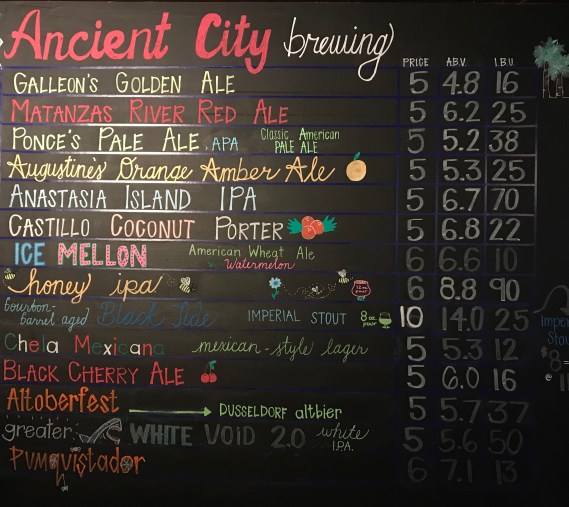 Ancient City brewing
PRICE A.B.V. I.B.U
GALLEON'S GOLDEN ALE 5 4.8 16
MATANZAS RIVER RED ALE 5 6.2 25
PONCE'S PALE ALE. APA Classic American PALE ALE 5 5.2 38
Augustine's Orange Amber Ale 5 5.3 25
ANASTASIA ISLAND IPA 5 6.7 70
CASTILLO COCONUT PORTER 5 6.8 22
ICE MELLON American Wheat Ale Watermelon 6 6.6 10
honey ipa 6 8.8 90
bourbon-barrel aged Black Tide IMPERIAL STOUT 8oz pour 10 14.0 25
Chela Mexicana mexican-style lager 5 5.3 12
BLACK CHERRY ALE 5 6.0 16
Altoberfest DUSSELDORF altbier 5 5.7 37
greater WHITE VOID 2.0 white I.P.A. 5 5.6 50
Pumquistador 6 7.1 13
Imper
Stou
$8
@